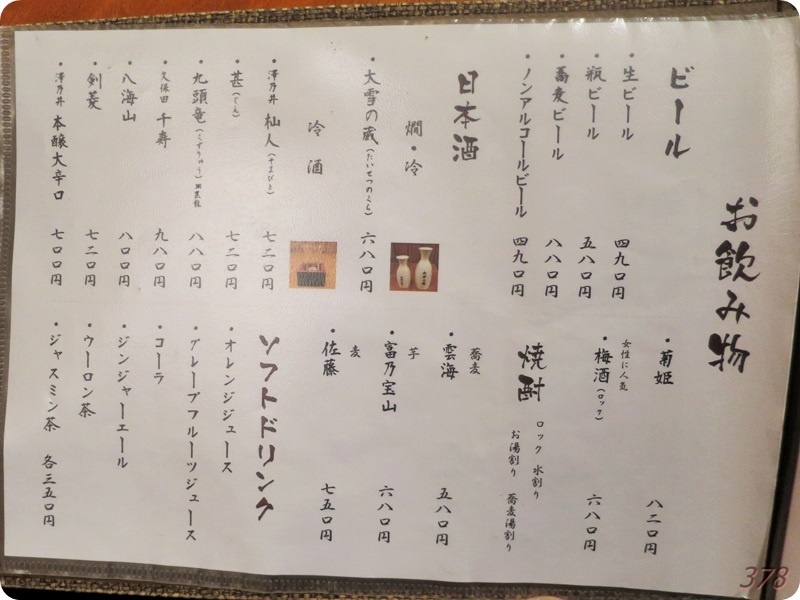 お飲み物
ビール
・生ビール 四九〇円
・瓶ビール 五八〇円
・蕎麦ビール 八八〇円
・ノンアルコールビール 四九〇円
日本酒
燗・冷
・大雪の蔵(たいせつのくら) 六八〇円
冷酒
・澤乃井 杣人(そまびと) 七二〇円
・甚(じん) 七二〇円
・九頭竜(くずりゅう) 八八〇円
・久保田 千寿 九八〇円
・八海山 八〇〇円
・剣菱 七二〇円
・澤乃井 本醸大辛口 七〇〇円
・菊姫 八二〇円
女性に人気
・梅酒(ロック) 六八〇円
焼酎
ロック 水割り
お湯割り 蕎麦湯割り
蕎麦
・雲海 五八〇円
芋
・富乃宝山 六八〇円
麦
・佐藤 七五〇円
ソフトドリンク
・オレンジジュース
・グレープフルーツジュース
・コーラ
・ジンジャーエール
・ウーロン茶
・ジャスミン茶 各三五〇円
378